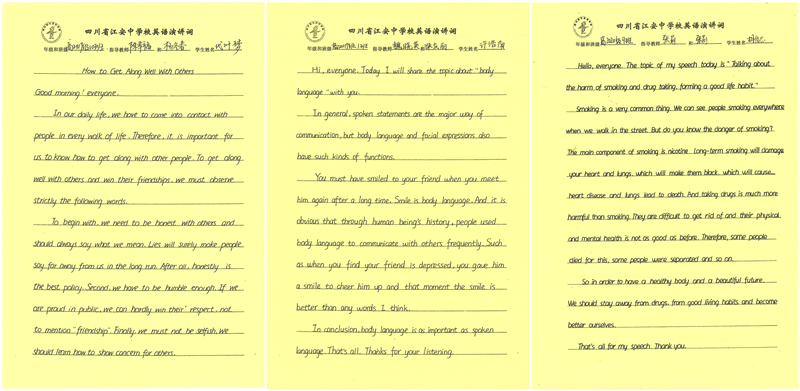 四川省江安中学校英语演讲词
年级和班级
指导教师
和
学生姓名
How to Get Along Well With Others
Good morning! everyone.
In our daily life, we have to come into contact with
people in every walk of life. Therefore, it is important for
us to know how to get along with other people. To get along
well with others and win their friendships, we must observe
strictly the following words.
To begin with, we need to be honest with others and
should always say what we mean. Lies will surely make people
say far away from us in the long run. After all, honestly is
the best policy. Second, we have to be humble enough. If we
are proud in public, we can hardly win their' respect, not
to mention "friendship". Finally, we must not be selfish. We
should learn how to show concern for others.
四川省江安中学校英语演讲词
年级和班级
指导教师
和
学生姓名
Hi, everyone. Today I will share the topic about "body
language" with you.
In general, spoken statements are the major way of
communication, but body language and facial expressions also
have such kinds of functions.
You must have smiled to your friend when you meet
him again after a long time. Smile is body language. And it is
obvious that through human being's history, people used
body language to communicate with others frequently. Such
as when you find your friend is depressed, you gave him
a smile to cheer him up and that moment the smile is
better than any words I think.
In conclusion, body language is as important as spoken
language. That's all. Thanks for your listening.
四川省江安中学校英语演讲词
年级和班级
指导教师
和
学生姓名
Hello, everyone. The topic of my speech today is "Talking about
the harm of smoking and drug taking, forming a good life habit."
Smoking is a very common thing. We can see people smoking everywhere
when we walk in the street. But do you know the danger of smoking?
The main component of smoking is nicotine. Long-term smoking will damage
your heart and lungs, which will make them black, which will cause
heart disease and lungs lead to death. And taking drugs is much more
harmful than smoking. They are difficult to get rid of and their physical
and mental health is not as good as before. Therefore, some people
died for this, some people were separated and so on.
So in order to have a healthy body and a beautiful future.
We should stay away from drugs, from good living habits and become
better ourselves.
That's all for my speech. Thank you.